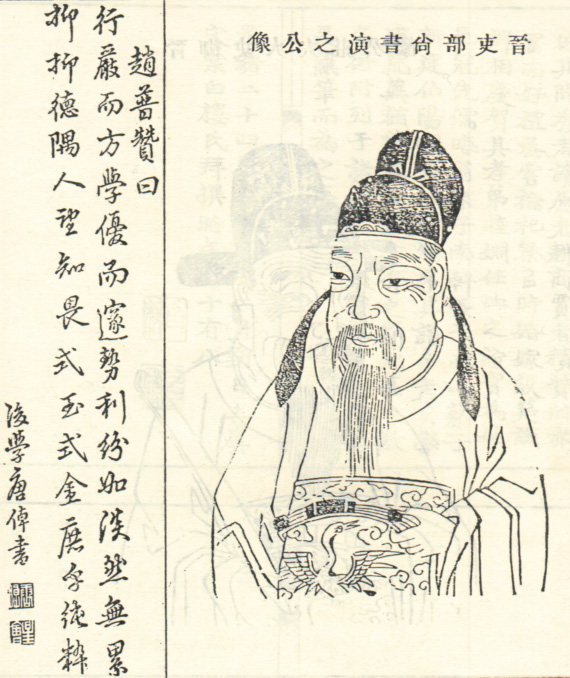 晉吏部尙書演之公像
趙普贊曰
行嚴而方學優而邃勢利紛如淡然無累
抑抑德隅人望知畏式玉式金庶乎純粹
後學唐倬書